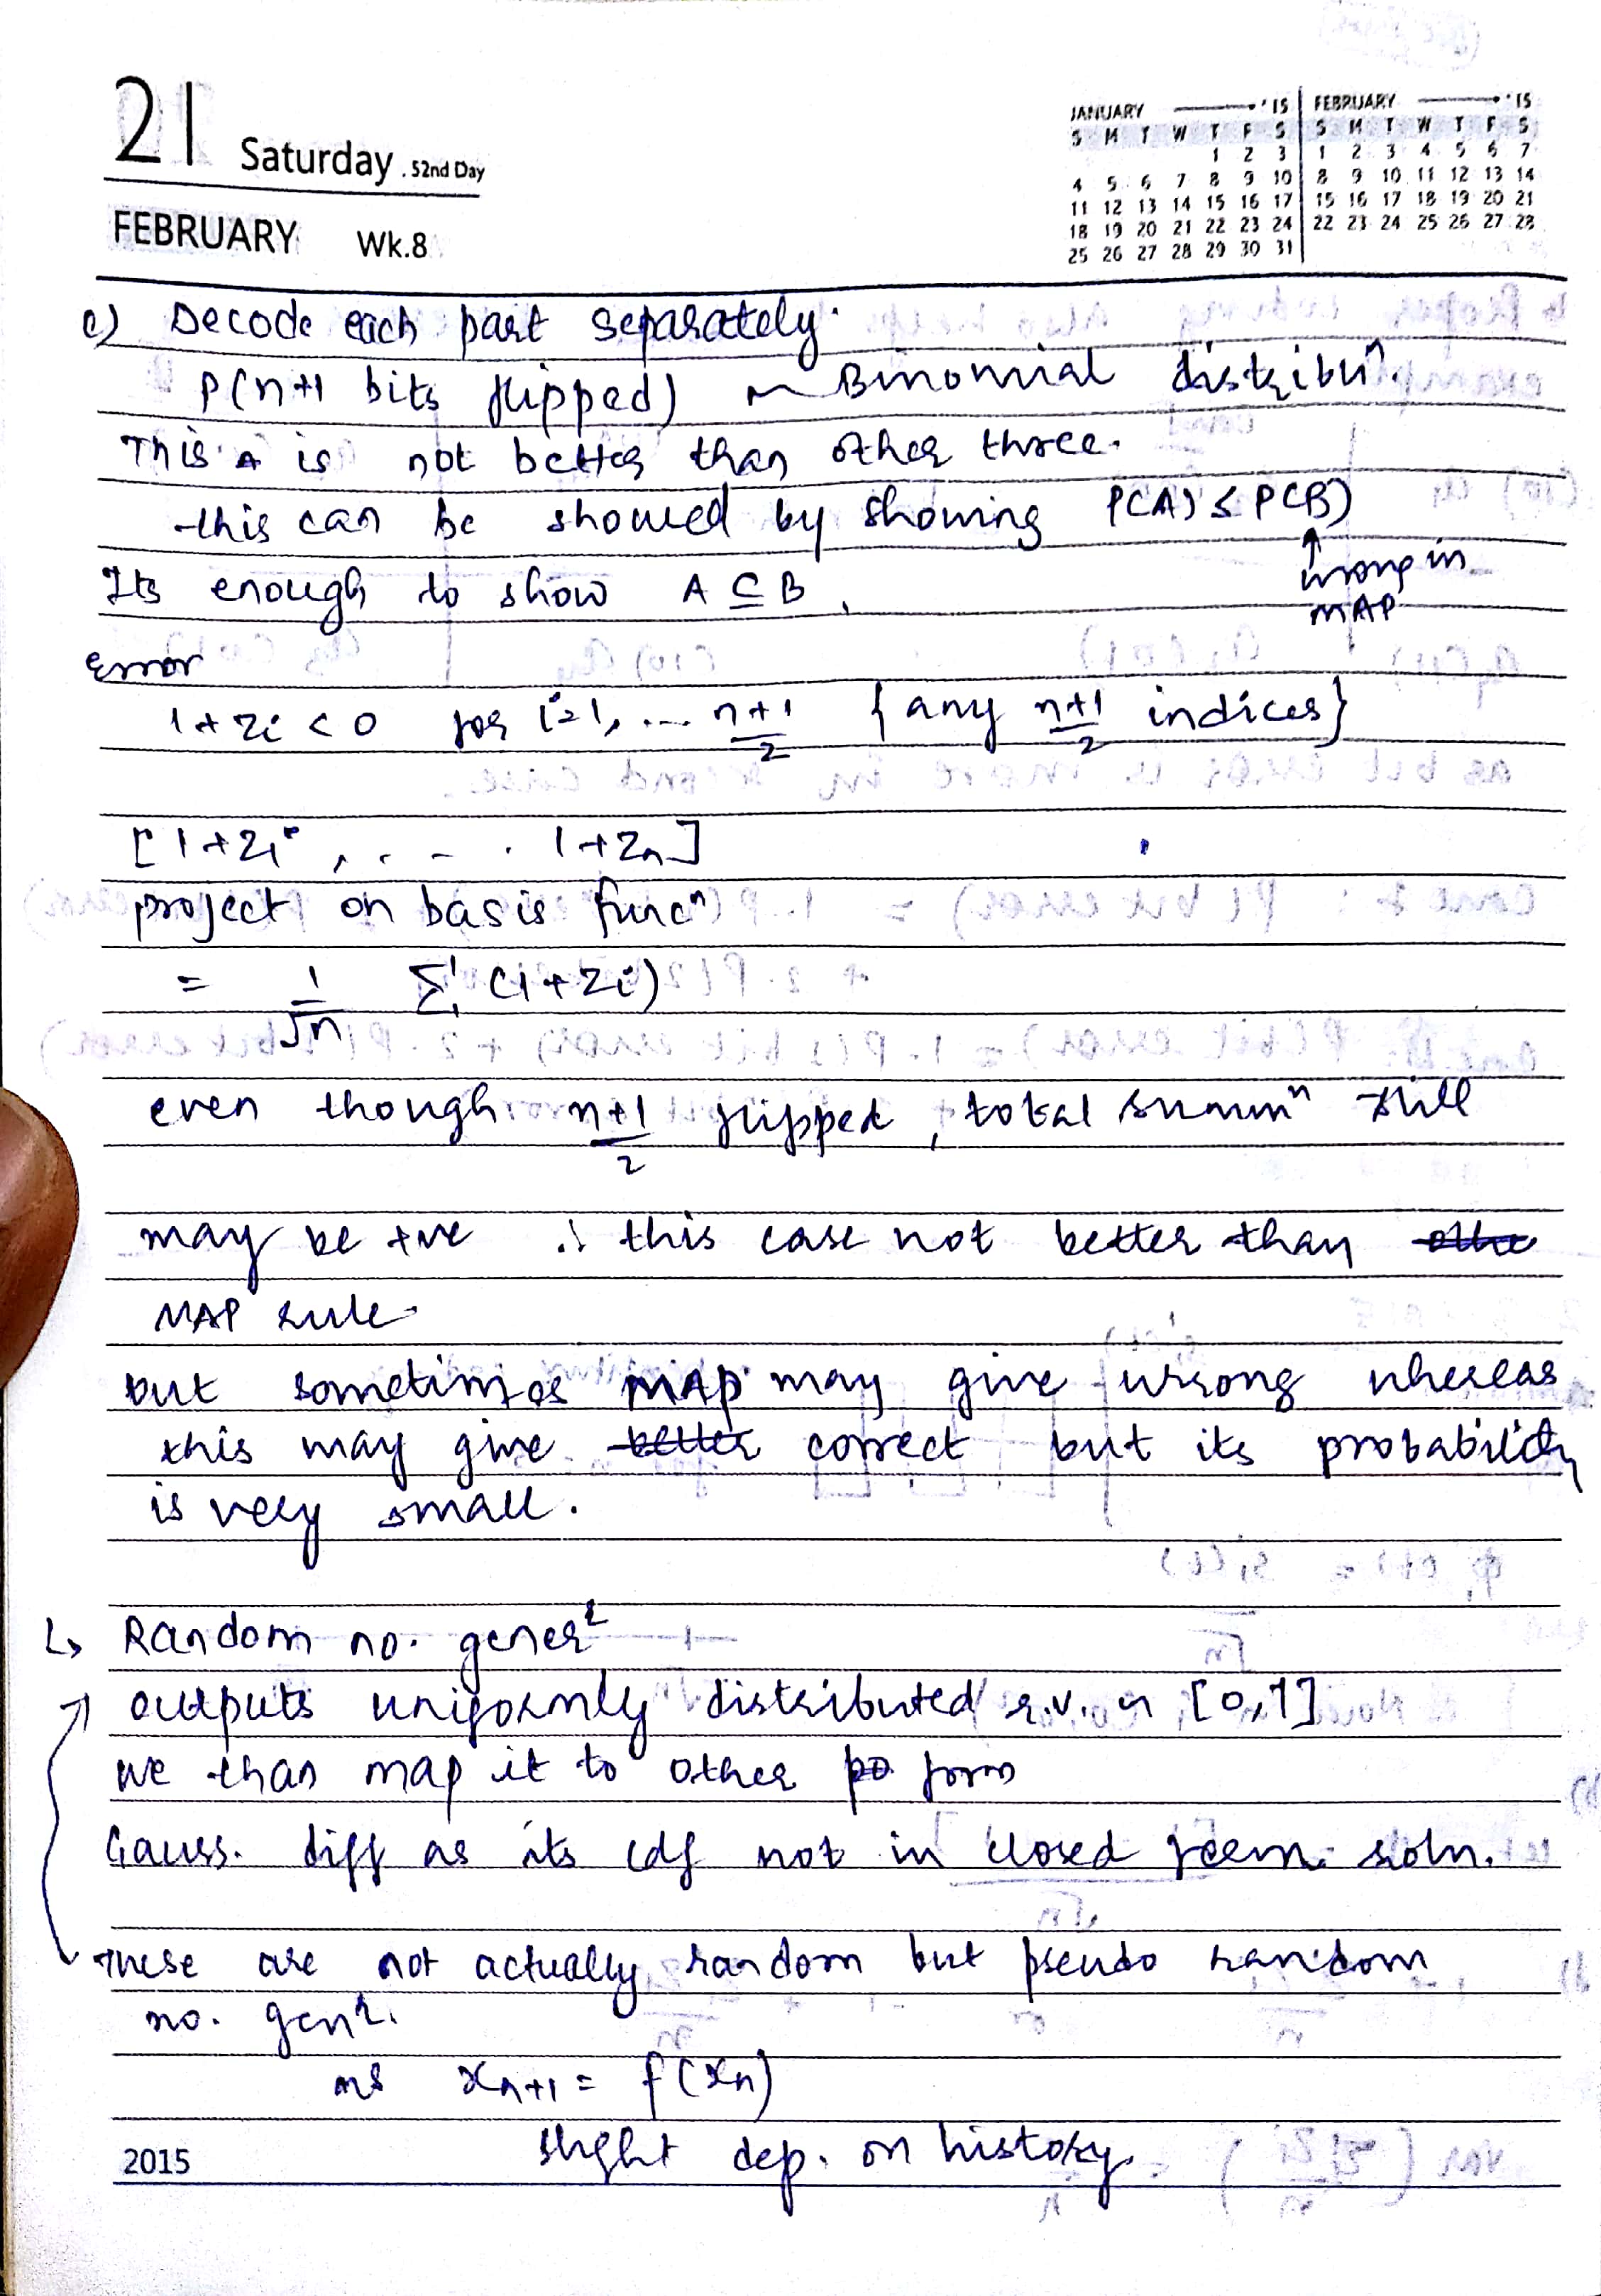 21 Saturday . 52nd Day
FEBRUARY Wk.8
JANUARY '15 FEBRUARY '15
S M T W T F S S M T W T F S
1 2 3 1 2 3 4 5 6 7
4 5 6 7 8 9 10 8 9 10 11 12 13 14
11 12 13 14 15 16 17 15 16 17 18 19 20 21
18 19 20 21 22 23 24 22 23 24 25 26 27 28
25 26 27 28 29 30 31
e) Decode each part separately.
P(n+1 bits flipped) ~ Binomial distribuⁿ.
This is not better than other three.
this can be showed by showing P(A) ≤ P(B)
↑
wrong in
MAP
Its enough to show A ⊆ B
Error
1+Zi < 0 for i=1, ... n+1/2 {any n+1/2 indices}
[1+Z1 , . . - . 1+Zn]
project on basis funcⁿ
= 1/√n Σ (1+Zi)
even though n+1/2 flipped, total summⁿ still
may be +ve ∴ this case not better than
MAP rule
but sometimes MAP may give wrong whereas
this may give better correct but its probability
is very small.
↳ Random no. generʳ
outputs uniformly distributed r.v. in [0,1]
we than map it to other form
Gauss. diff as its cdf not in closed form soln.
These are not actually random but pseudo random
no. genʳ.
as xn+1 = f(xn)
slight dep. on history
2015